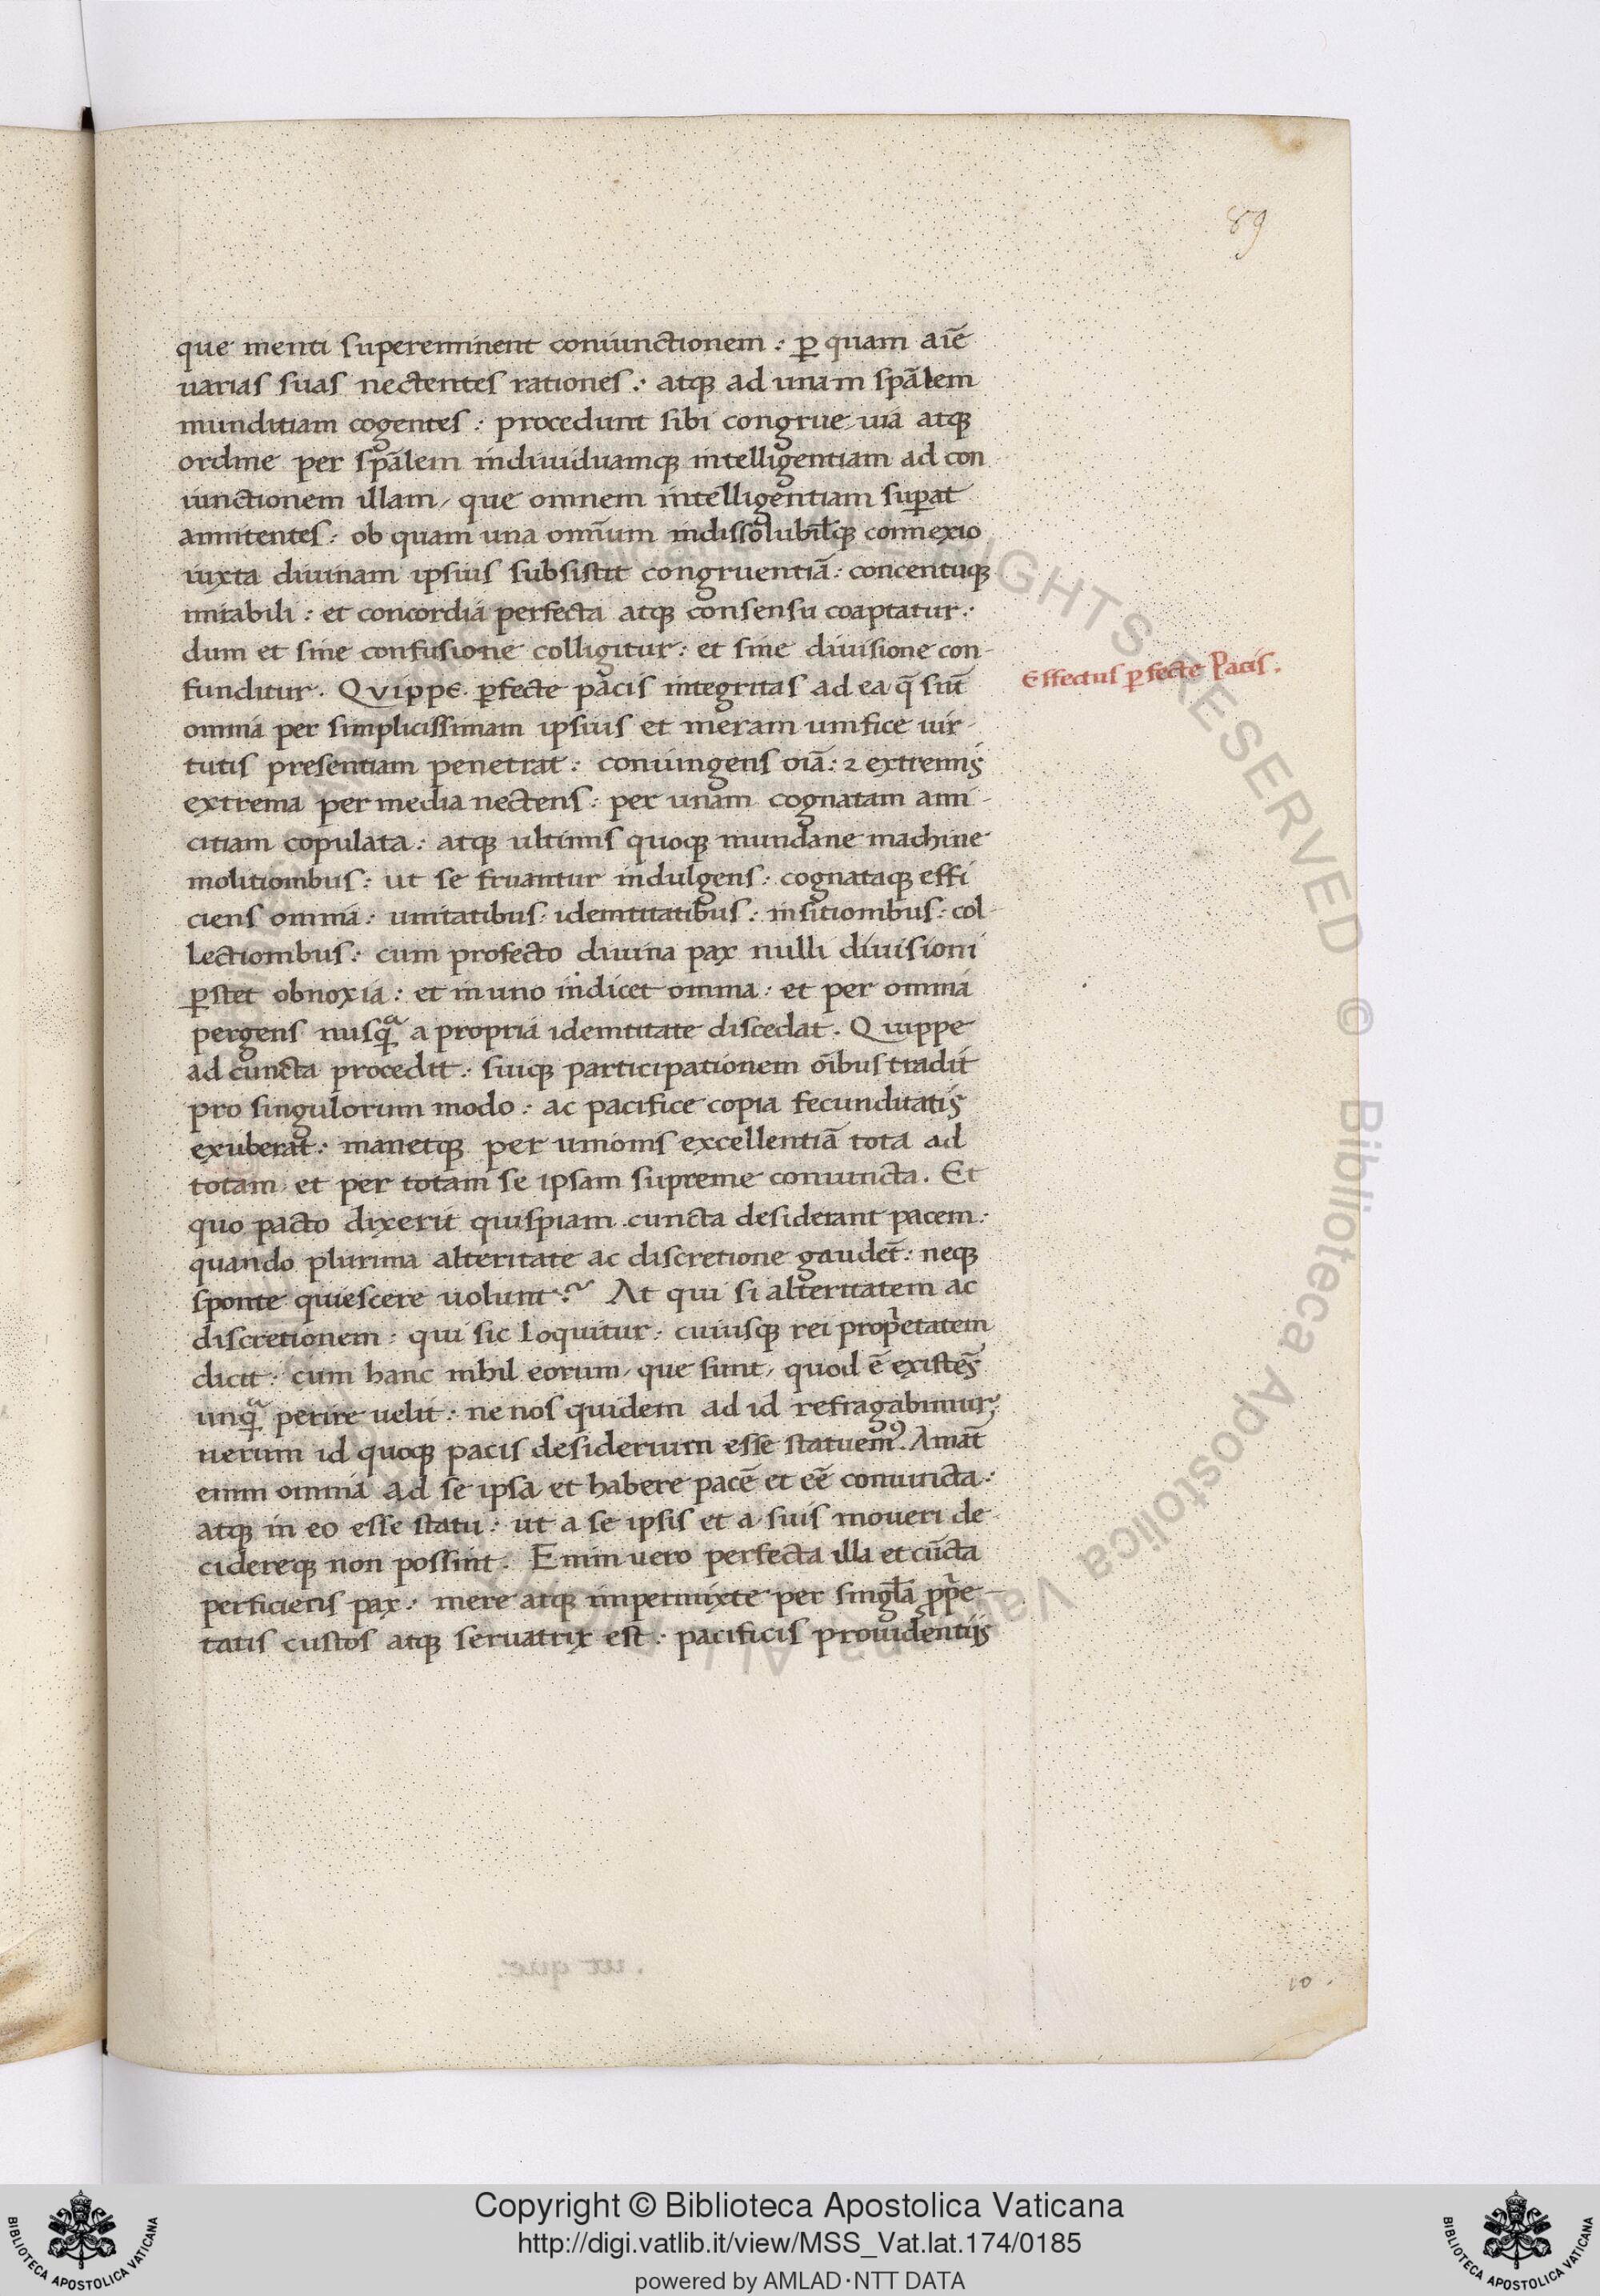 89
que menti supereminent coniunctionem : ꝑ quam aīe
uarias suas nectentes rationes : atqꝫ ad unam spālem
munditiam cogentes : procedunt sibi congrue uia atqꝫ
ordine per spālem indiuiduamqꝫ intelligentiam ad con
iunctionem illam / que omnem intelligentiam suꝑat
annitentes : ob quam una omīum indissolubilīqꝫ connexio
iuxta diuinam ipsius subsistit congruentiā : concentuqꝫ
miabili : et concordia perfecta atqꝫ consensu coaptatur :
dum et sine confusione colligitur : et sine diuisione con-
funditur . Quippe ꝑfecte pacis integritas ad ea q̄ sūt
omnia per simplicissimam ipsius et meram unifice uir-
tutis presentiam penetrat : coniungens oīa : ⁊ extremis
extrema per media nectens : per unam cognatam ami-
citiam copulata : atqꝫ ultimis quoqꝫ mundane machine
molitionibus : ut se fruantur indulgens : cognataqꝫ effi
ciens omnia : unitatibus : idemtitatibus : insitionibus : col-
lectionibus : cum profecto diuina pax nulli diuisioni
ꝑstet obnoxia : et in uno indicet omnia : et per omnia
pergens nusqᷓ a propria idemtitate discedat . Quippe
ad cuncta procedit : suiqꝫ participationem oībus tradit
pro singulorum modo : ac pacifice copia fecunditatis
exuberat : manetqꝫ per unionis excellentiā tota ad
totam et per totam se ipsam supreme coniuncta . Et
quo pacto dixerit quispiam cuncta desiderant pacem :
quando plurima alteritate ac discretione gaudēt : neqꝫ
sponte quiescere uolunt ? At qui si alteritatem ac
discretionem : qui sic loquitur : cuiusqꝫ rei prop̄etatem
dicit : cum hanc nihil eorum / que sunt / quod ē existēs
unqᷓ perire uelit : ne nos quidem ad id refragabimur :
uerum id quoqꝫ pacis desiderium esse statuemꝰ . Amāt
enim omnia ad se ipsa et habere pacē et eē coniuncta :
atqꝫ in eo esse statu : ut a se ipsis et a suis moueri de-
cidereqꝫ non possint . Enim uero perfecta illa et cūcta
perficiens pax : mere atqꝫ impermixte per singl̄a ꝓp̄e-
tatis custos atqꝫ seruatrix est : pacificis prouidentijs
Effectus ꝑfecte Pacis .
10 .
Copyright © Biblioteca Apostolica Vaticana
http://digi.vatlib.it/view/MSS_Vat.lat.174/0185
powered by AMLAD·NTT DATA
BIBLIOTECA APOSTOLICA VATICANA
BIBLIOTECA APOSTOLICA VATICANA